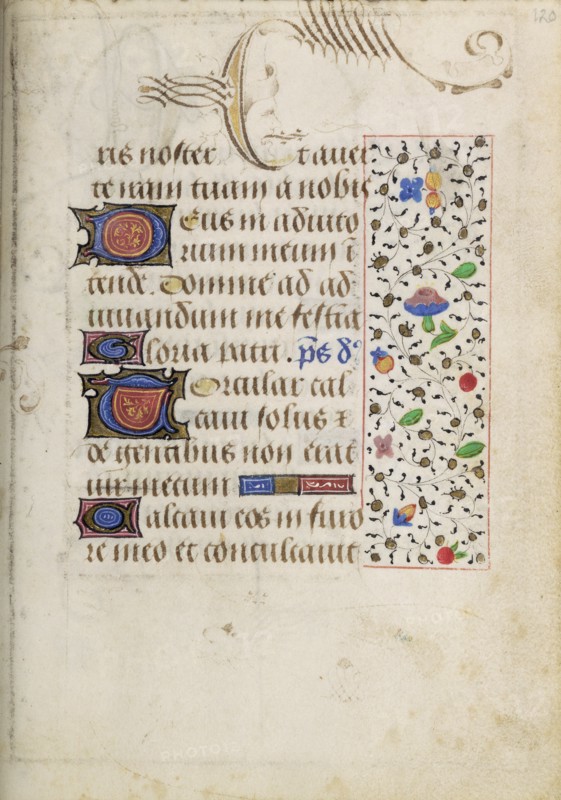 120
ris noster Et auer
te iram tuam a nobis
Deus in adiuto
rium meum ī
tende. Domine ad ad
iuuandum me festina
Gloria patri. ps dd
Torcular cal
caui solus &
de gentibus non erat
uir mecum
Calcaui eos in furo
re meo et conculcaui e